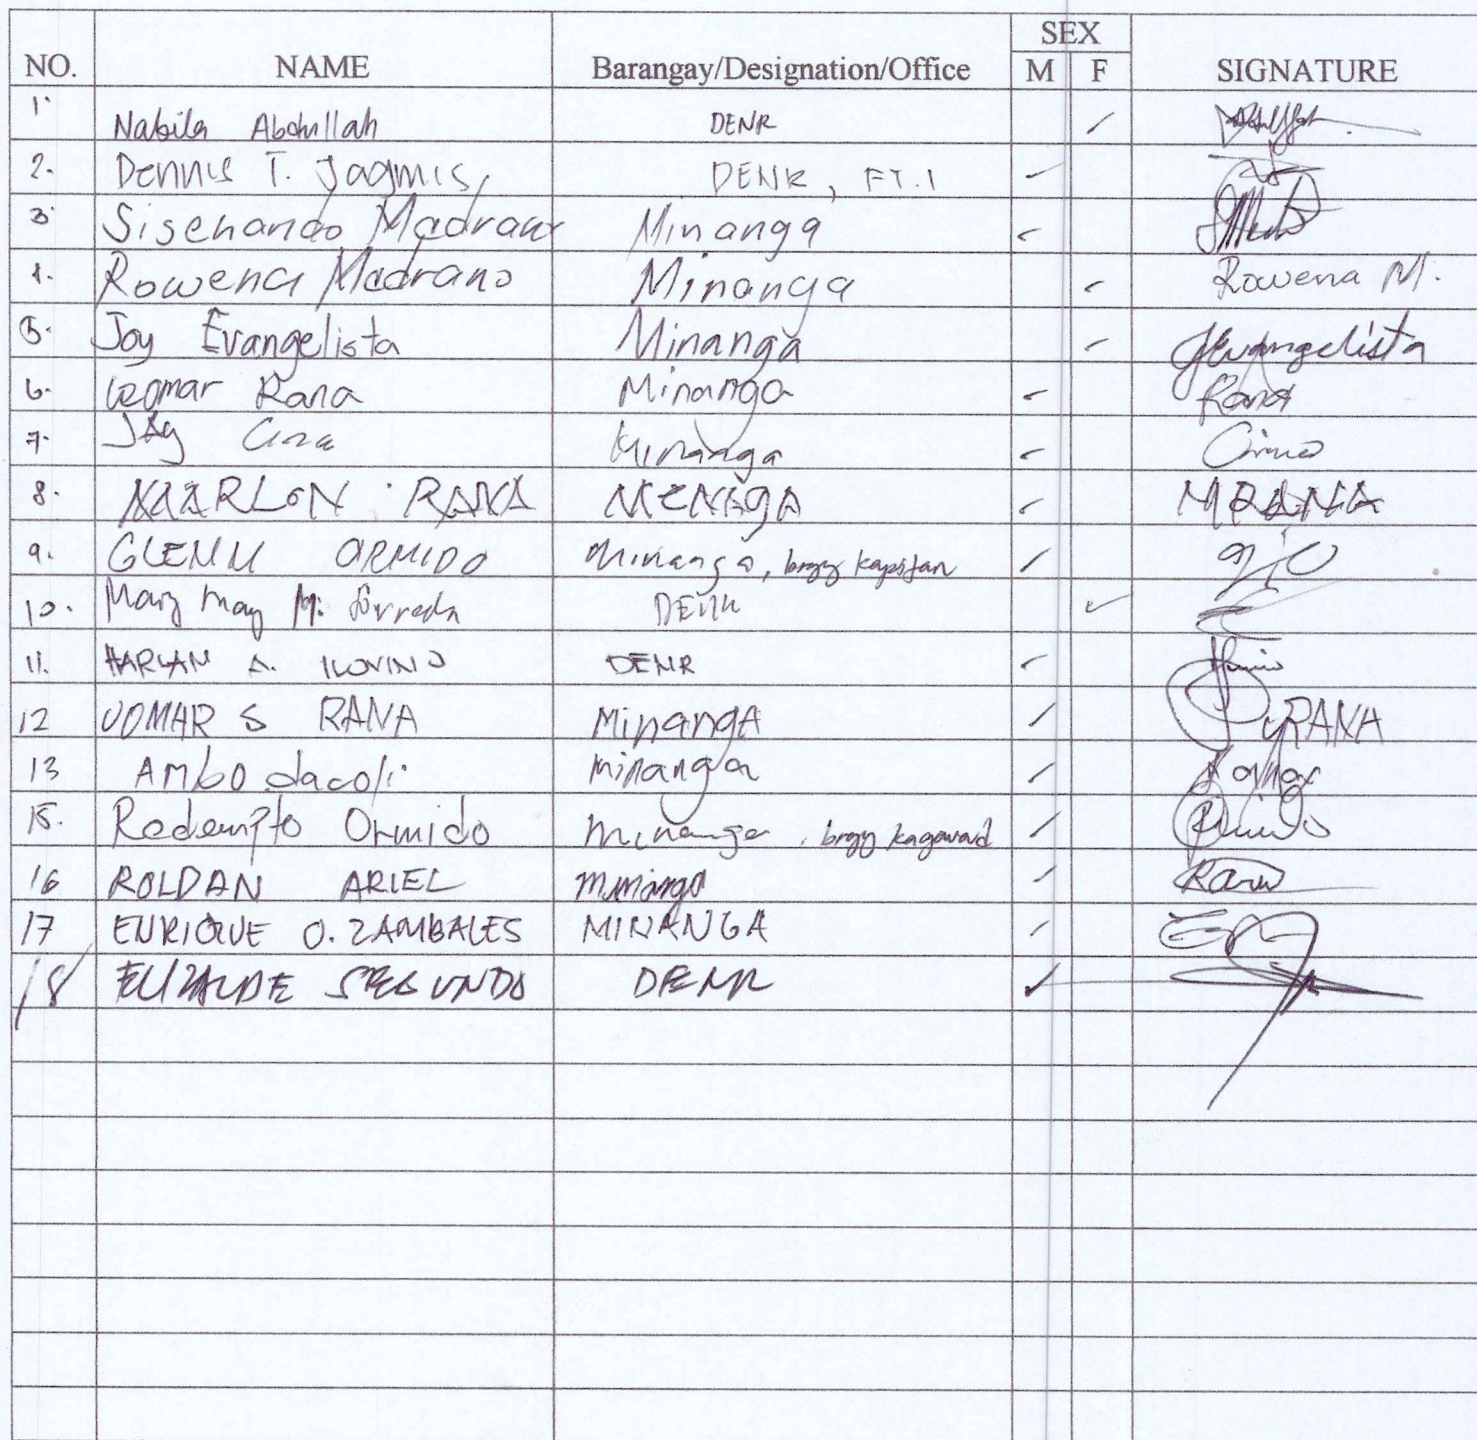 NO. NAME Barangay/Designation/Office SEX M F SIGNATURE
1. Nabila Abdullah DENR ✓
2. Dennis T. Jagmis, DENR, FT.1 ✓
3. Sisenando Madrano Minanga ✓
4. Rowena Madrano Minanga ✓ Rowena M.
5. Joy Evangelista Minanga ✓ JEvangelista
6. Romar Rana Minanga ✓ Rana
7. Jay Minanga ✓
8. MARLON RANA MENAGA ✓ MRANA
9. GLENN ORMIDO Minanga, brgy kapitan ✓
10. Mary may M. DENR ✓
11. HARLAN A. ILOVINO DENR ✓
12 JOMAR S RANA Minanga ✓ RANA
13 AMbO dacoli Minanga ✓
15. Redempto Ormido Minanga, brgy kagawad ✓
16 ROLDAN ARIEL Minanga ✓
17 ENRIQUE O. ZAMBALES MINANGA ✓
18 ELIZALDE SEGUNDO DENR ✓